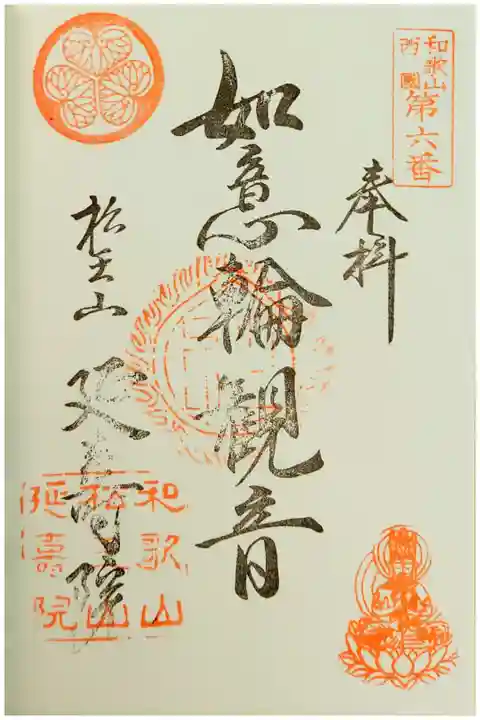 和歌山
西國
第六番
奉拝
如意輪観音
松王山
延壽院
和歌山
松王山
延壽院